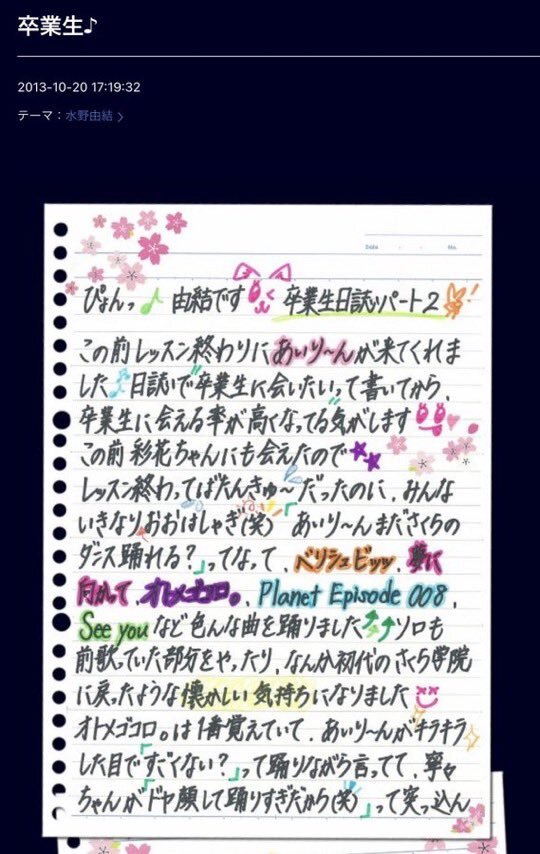 卒業生♪
2013-10-20 17:19:32
テーマ：水野由結
Date . . No.
ぴょんっ♪ 由結です 卒業生日誌ッパート2
この前レッスン終わりにあいり～んが来てくれま
した♪日誌で"卒業生に会いたい"って書いてから、
卒業生に会える率が高くなってる気がします
この前彩花ちゃんにも会えたので★★
レッスン終わってばたんきゅ～だったのに、みんな
いきなりおおはしゃぎ(笑)「あいり～んまださくらの
ダンス踊れる？」ってなって、ベリシュビッッ、夢に
向かって、オトメゴコロ。、Planet Episode 008、
See youなど色んな曲を踊りました ソロも
前歌っていた部分をやったり、なんか初代のさくら学院
に戻ったような懐かしい気持ちになりました
オトメゴコロ。は1番覚えていて、あいり～んがキラキラ
した目で「すごくない？」って踊りながら言ってて、寧々
ちゃんが「ドヤ顔して踊りすぎだから(笑)」って突っ込ん